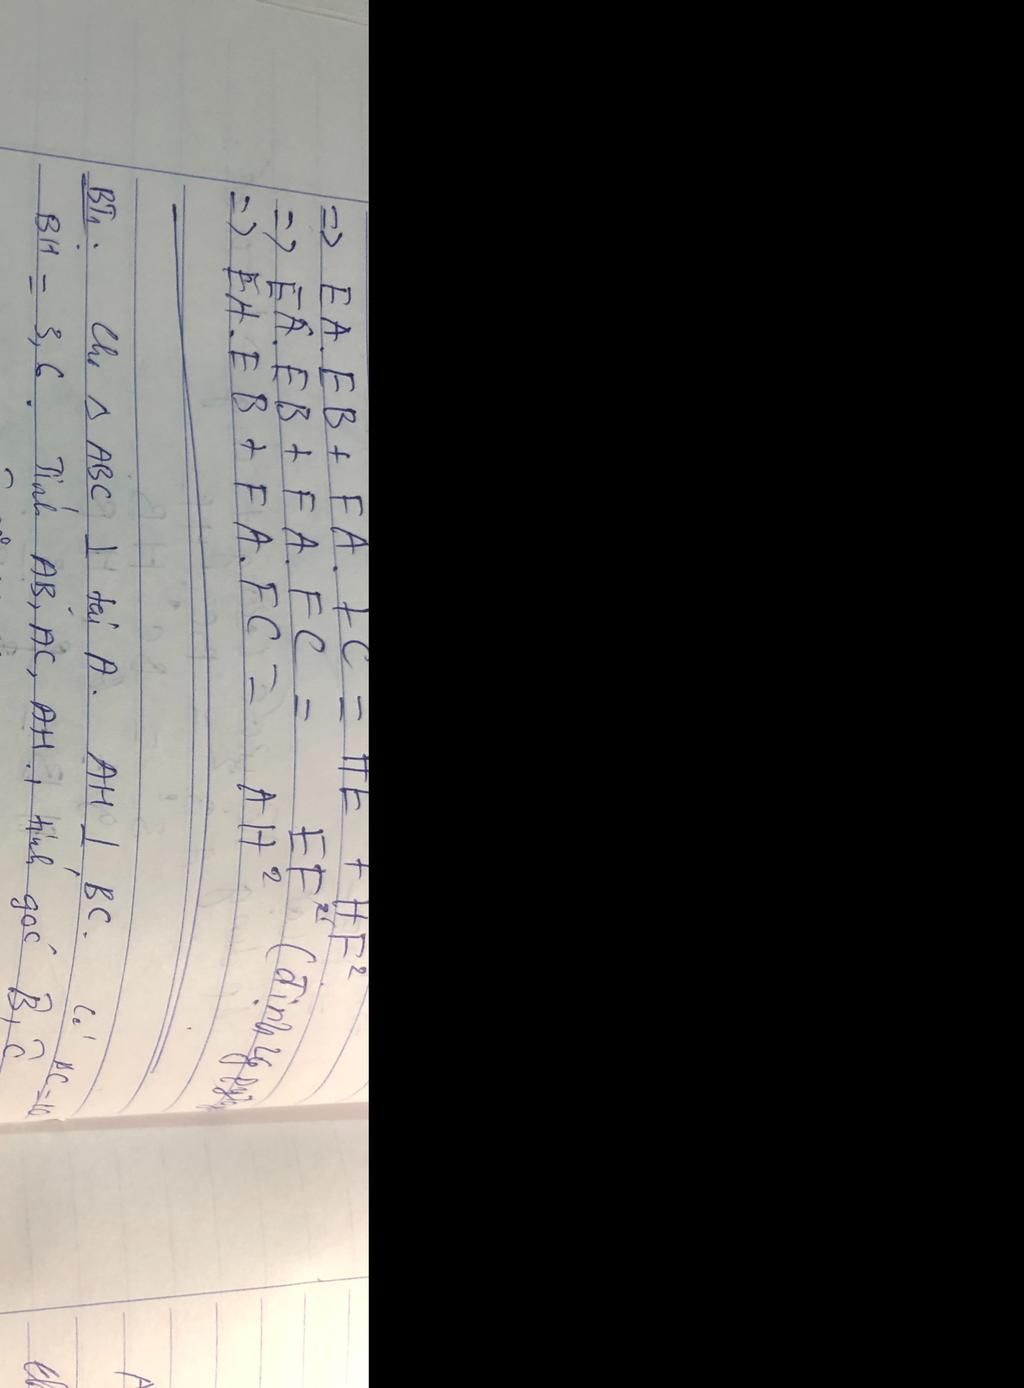 => EA.EB + FA.FC = HE + HF²
=> EA.EB + FA.FC = EF² (định lý
=> EA.EB + FA.FC = AH²
BT1: Cho △ ABC ⊥ tại A. AH ⊥ BC. Có BC=10
BH = 3,6. Tính AB, AC, AH, tính góc B̂, Ĉ